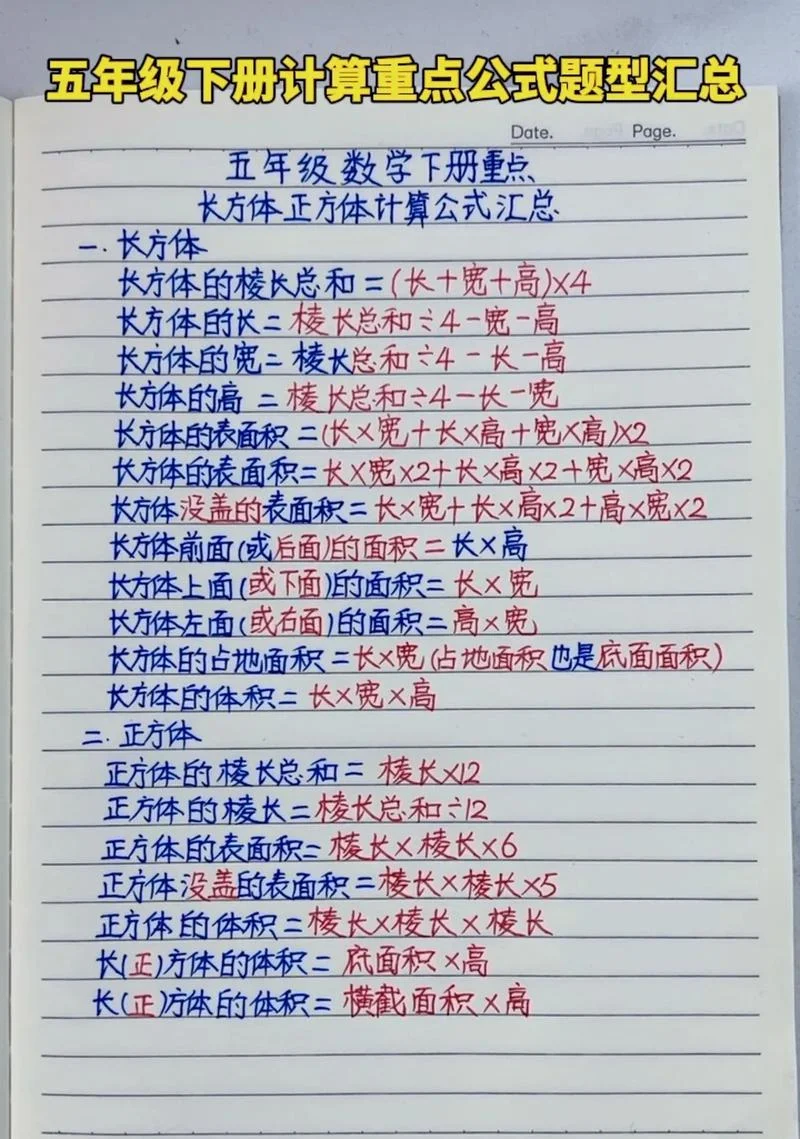 五年级下册计算重点公式题型汇总
Date. Page.
五年级数学下册重点
长方体正方体计算公式汇总
一.长方体
长方体的棱长总和=(长+宽+高)×4
长方体的长=棱长总和÷4-宽-高
长方体的宽=棱长总和÷4-长-高
长方体的高=棱长总和÷4-长-宽
长方体的表面积=(长×宽+长×高+宽×高)×2
长方体的表面积=长×宽×2+长×高×2+宽×高×2
长方体没盖的表面积=长×宽+长×高×2+高×宽×2
长方体前面(或后面)的面积=长×高
长方体上面(或下面)的面积=长×宽
长方体左面(或右面)的面积=高×宽
长方体的占地面积=长×宽(占地面积也是底面面积)
长方体的体积=长×宽×高
二.正方体
正方体的棱长总和=棱长×12
正方体的棱长=棱长总和÷12
正方体的表面积=棱长×棱长×6
正方体没盖的表面积=棱长×棱长×5
正方体的体积=棱长×棱长×棱长
长(正)方体的体积=底面积×高
长(正)方体的体积=横截面积×高